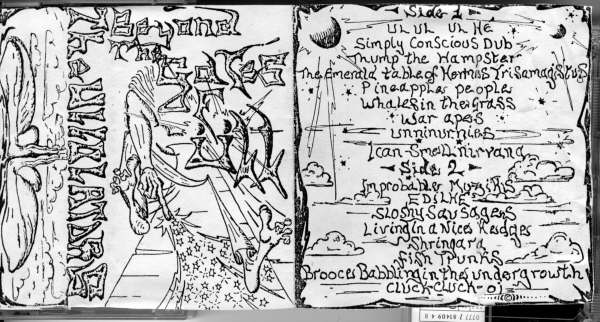 The ULLULATORS
Beyond
The Gates
Side 1
UL UL UL HE
Simply Conscious Dub
Thump the Hampster
The Emerald table of Hermes Trisamagistus
Pineapple people
Whales in the Grass
War apes
I can Smell nirvana
Side 2
Improbable
EDILHE
Sloshy Sausages
Living in a Nice Hedges
Shringara
Fish Trunks
Brooces Babbling in the undergrowth
CLUCK-CLUCK-OI
©
0777 / 81409 4 8